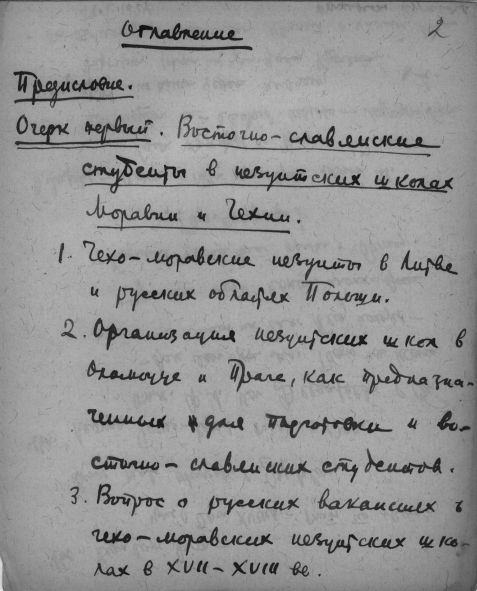 Оглавление
2
Предисловие.
Очерк первый. Восточно-славянские
студенты в иезуитских школах
Моравии и Чехии.
1. Чехо-моравские иезуиты в Литве
и русских областях Польши.
2. Организация иезуитских школ в
Оломоуце и Праге, как предназна-
ченных для подготовки и во-
сточно-славянских студентов.
3. Вопрос о русских вакансиях в
чехо-моравских иезуитских шко-
лах в XVII-XVIII вв.